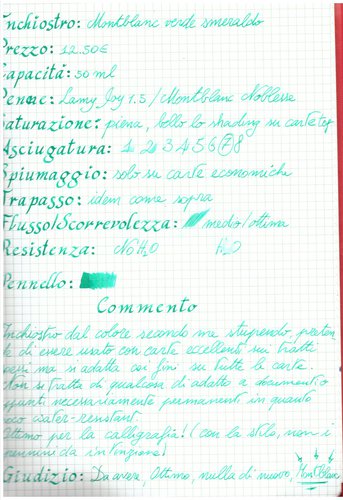 Inchiostro: Montblanc verde smeraldo
Prezzo: 12.50€
Capacità: 50 ml
Penne: Lamy Joy 1.5 / Montblanc Noblesse
Saturazione: piena, bello lo shading su carte
Asciugatura: 1 2 3 4 5 6 7 8
Spiumaggio: solo su carte economiche
Trapasso: idem come sopra
Flusso/Scorrevolezza: medio/ottima
Resistenza: No H2O H2O
Pennello:
Commento
Inchiostro dal colore secondo me stupendo,
te di essere usato con carte eccellenti sui tratti
ma si adatta coi fini su tutte le carte.
Non si tratta di qualcosa di adatto a documenti o
necessariamente permanenti in quanto
poco water-resistant.
Ottimo per la calligrafia! (con la stilo, non i
pennini da intinzione)
Giudizio: Da avere, Ottimo, nulla di nuovo, Montblanc